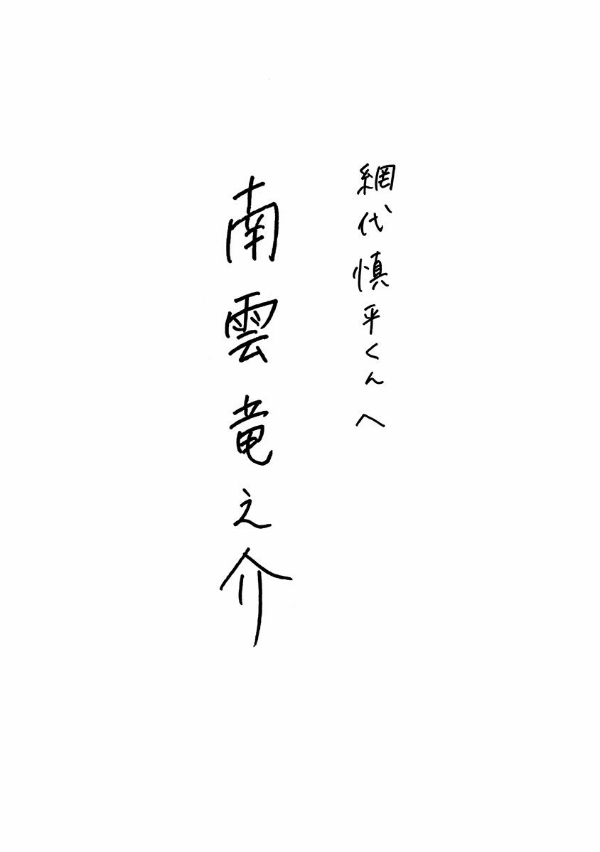 網代慎平くんへ
南雲竜之介